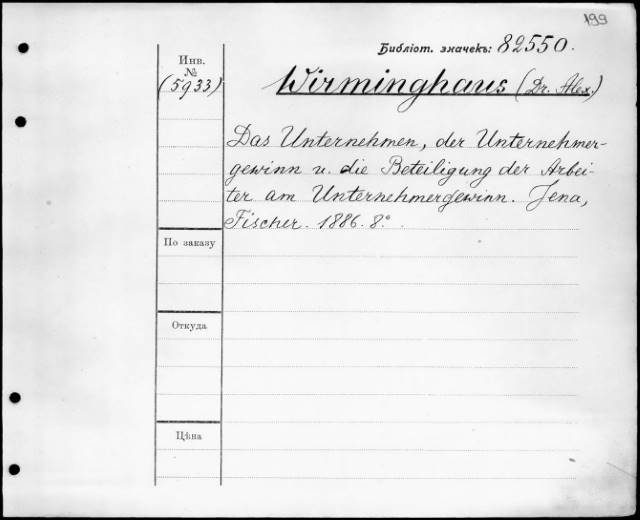 199
Библіот. значекъ: 82550.
Инв.
№
(5933)
Wirminghaus (Dr. Alex.)
Das Unternehmen, der Unternehmer-
gewinn u. die Beteiligung der Arbei-
ter am Unternehmergewinn. Jena,
Fischer. 1886. 8º.
По заказу
Откуда
Цѣна